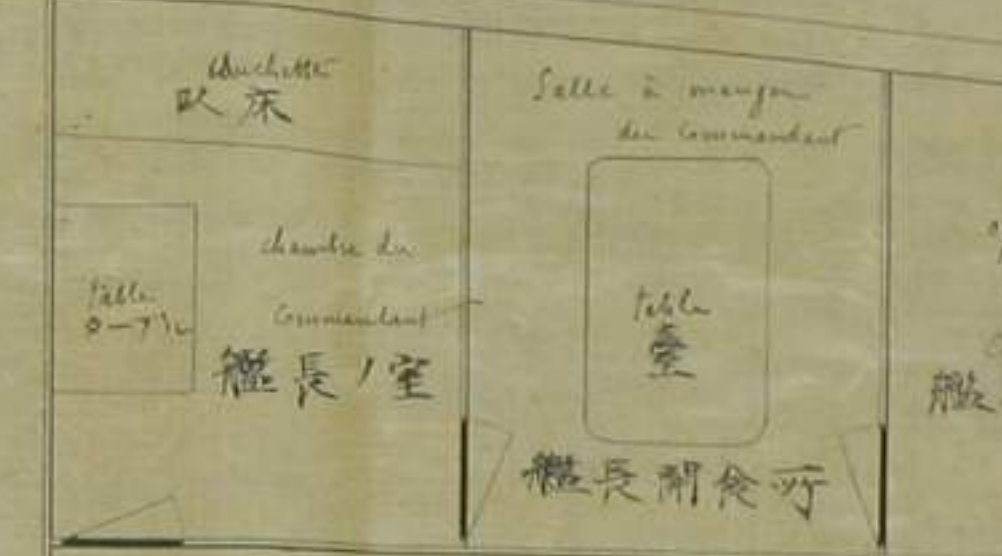 Couchette
臥床
table
chambre du
Commandant
艦長ノ室
Salle à manger
du Commandant
table
臺
艦長 食所
艦